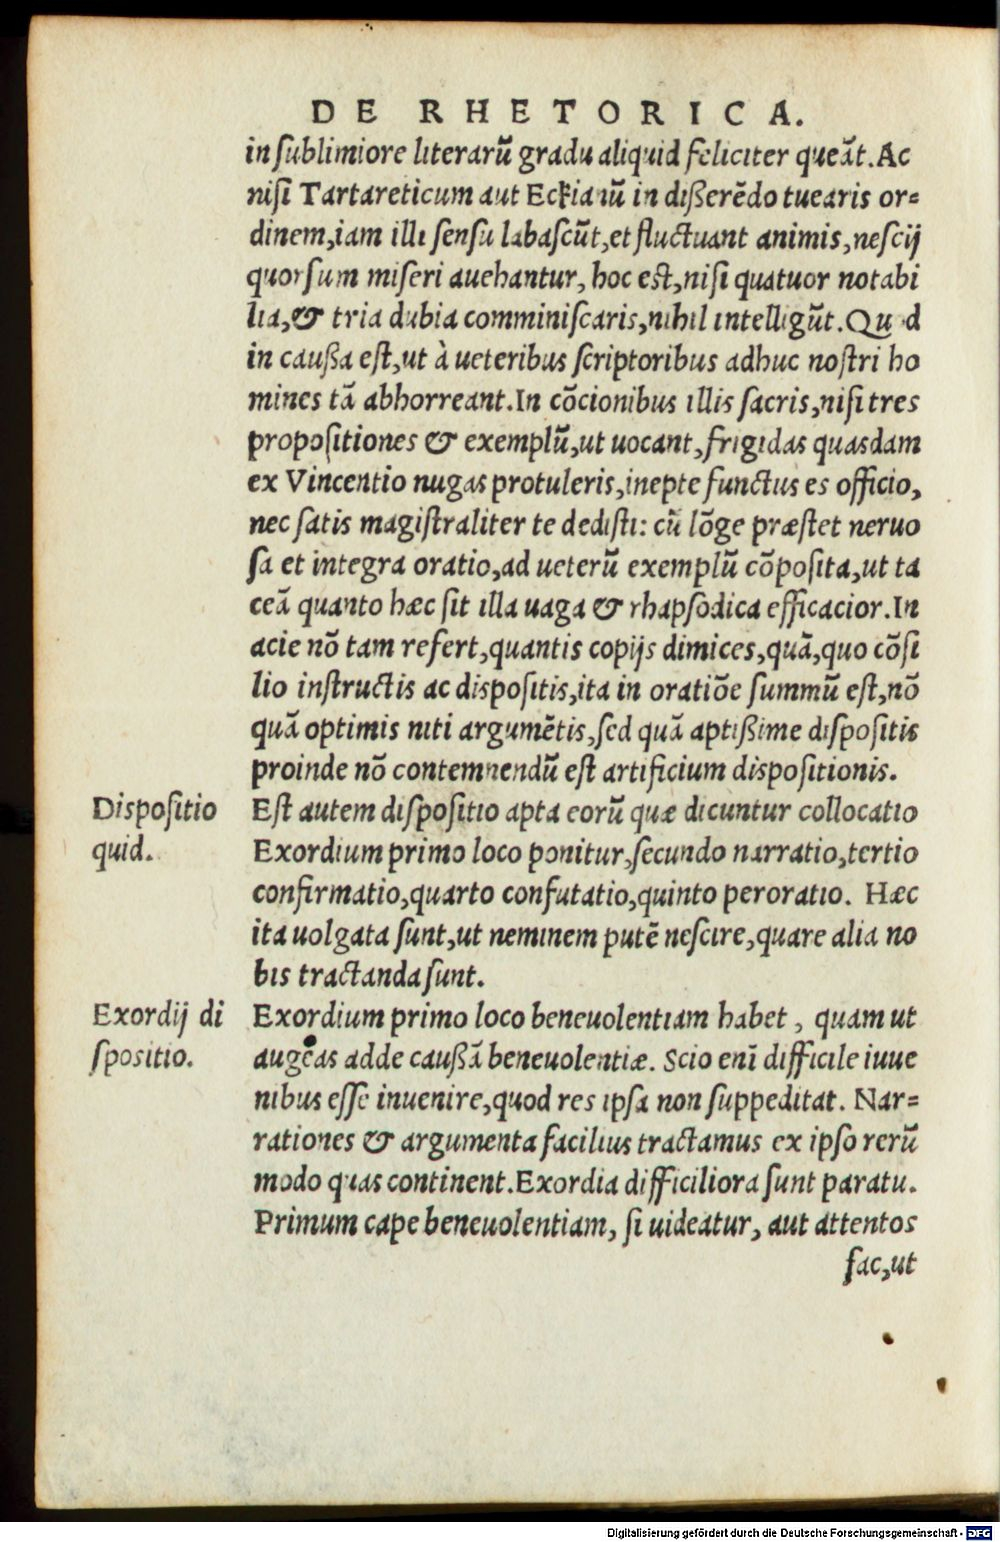 DE RHETORICA.
in ſublimiore literarũ gradu aliquid feliciter queãt. Ac
niſi Tartareticum aut Eckianũ in dißerẽdo tuearis or=
dinem, iam illi ſenſu labaſcũt, et fluctuant animis, neſcij
quorſum miſeri auehantur, hoc eſt, niſi quatuor notabi
lia, & tria dubia comminiſcaris, nihil intelligũt. Quod
in caußa eſt, ut à ueteribus ſcriptoribus adhuc noſtri ho
mines tã abhorreant. In cõcionibus illis ſacris, niſi tres
propoſitiones & exemplũ, ut uocant, frigidas quasdam
ex Vincentio nugas protuleris, inepte functus es officio,
nec ſatis magiſtraliter te dediſti: cũ lõge præſtet neruo
ſa et integra oratio, ad ueterũ exemplũ cõpoſita, ut ta
ceã quanto hæc ſit illa uaga & rhapſodica efficacior. In
acie nõ tam refert, quantis copijs dimices, quã, quo cõſi
lio inſtructis ac diſpoſitis, ita in oratiõe ſummũ eſt, nõ
quã optimis niti argumẽtis, ſed quã aptißime diſpoſitis
proinde nõ contemnendũ eſt artificium diſpoſitionis.
Diſpoſitio
quid.
Eſt autem diſpoſitio apta eorũ quæ dicuntur collocatio
Exordium primo loco ponitur, ſecundo narratio, tertio
confirmatio, quarto confutatio, quinto peroratio. Hæc
ita uolgata ſunt, ut neminem putẽ neſcire, quare alia no
bis tractanda ſunt.
Exordij di
ſpoſitio.
Exordium primo loco beneuolentiam habet, quam ut
augeas adde caußã beneuolentiæ. Scio enĩ difficile iuue
nibus eſſe inuenire, quod res ipſa non ſuppeditat. Nar=
rationes & argumenta facilius tractamus ex ipſo rerũ
modo quas continent. Exordia difficiliora ſunt paratu.
Primum cape beneuolentiam, ſi uideatur, aut attentos
fac, ut
Digitalisierung gefördert durch die Deutsche Forschungsgemeinschaft - DFG